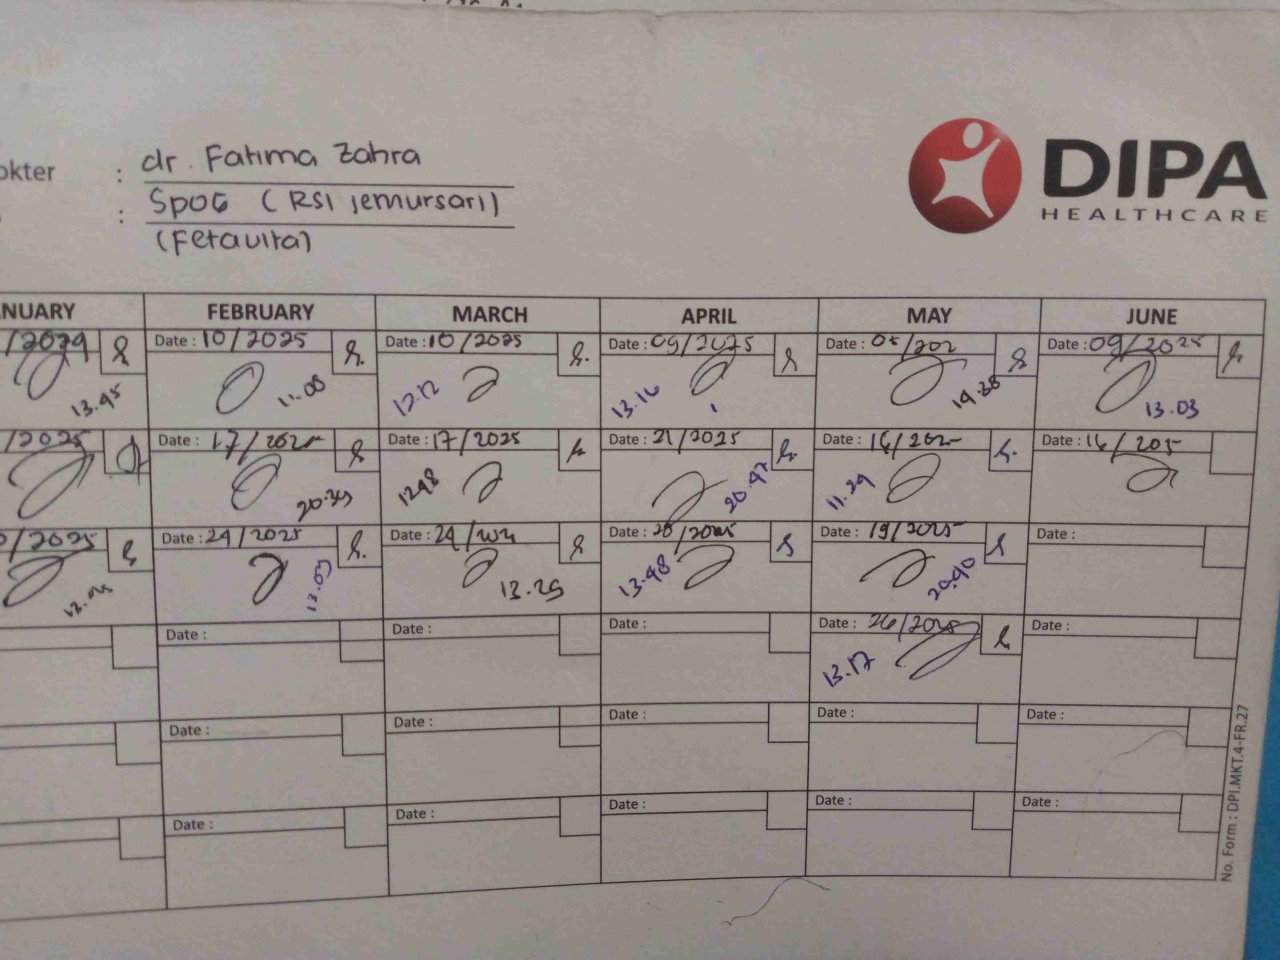 okter : dr. Fatima Zahra
: SpOG (RSI Jemursari)
(Fetavita)
DIPA
HEALTHCARE
NUARY FEBRUARY MARCH APRIL MAY JUNE
/2024 Date : 10/2025 Date : 10/2025 Date : 09/2025 Date : 05/202 Date : 09/2025
13.45 11.08 12.12 13.16 14.38 13.03
/2025 Date : 17/2025 Date : 17/2025 Date : 21/2025 Date : 14/2025 Date : 16/205
20.39 1248 20.47 11.29
/2025 Date : 24/2025 Date : 24/ Date : 28/2025 Date : 19/2025 Date :
13.03 13.29 13.48 20.40
Date : Date : Date : Date : 26/2025 Date :
13.17
Date : Date : Date : Date : Date :
Date : Date : Date : Date : Date :
No. Form : DPI.MKT.4-FR.27